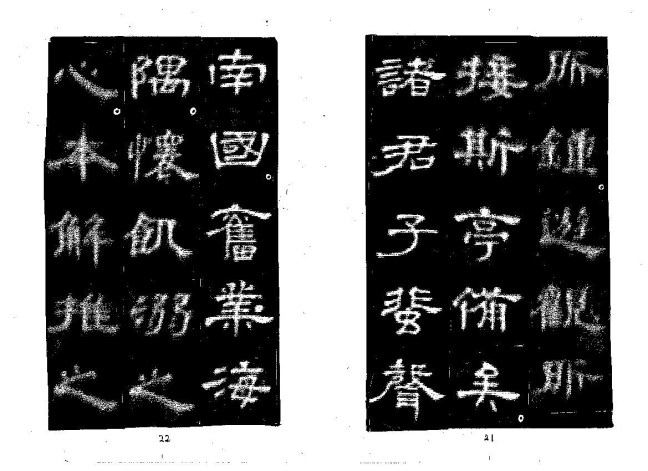 所鍾遊觀所
接斯亭備矣
諸君子蜚聲
21
南國奮業海
隅懷飢溺之
心本解推之
22